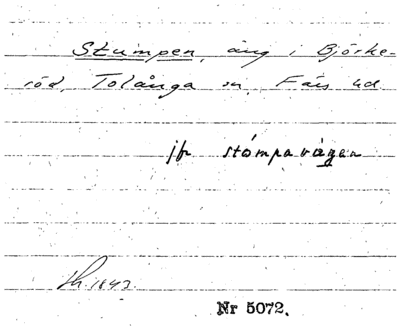 Stumpen, äng i Björke-
röd, Tolånga sn, Färs hd
jfr stómpavägen
1843.
Nr 5072.